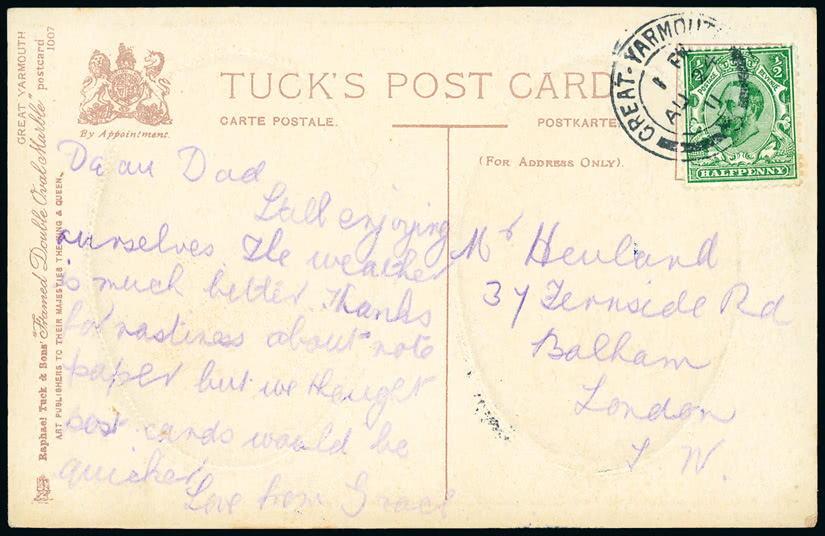 GREAT YARMOUTH
"Framed Double Oval Marble" postcard 1007
Raphael Tuck & Sons'
ART PUBLISHERS TO THEIR MAJESTIES THE KING & QUEEN.
By Appointment.
TUCK'S POST CARD
CARTE POSTALE.
POSTKARTE
(FOR ADDRESS ONLY).
GREAT YARMOUTH
AU 24
11
POSTAGE REVENUE
½ ½
HALFPENNY
Dear Dad
Still enjoying
ourselves. The weather
is much better. Thanks
for nastiness about note
paper but we thought
post cards would be
quicker
Love from Grace
Mr Heuland
37 Fernside Rd
Balham
London
S W.